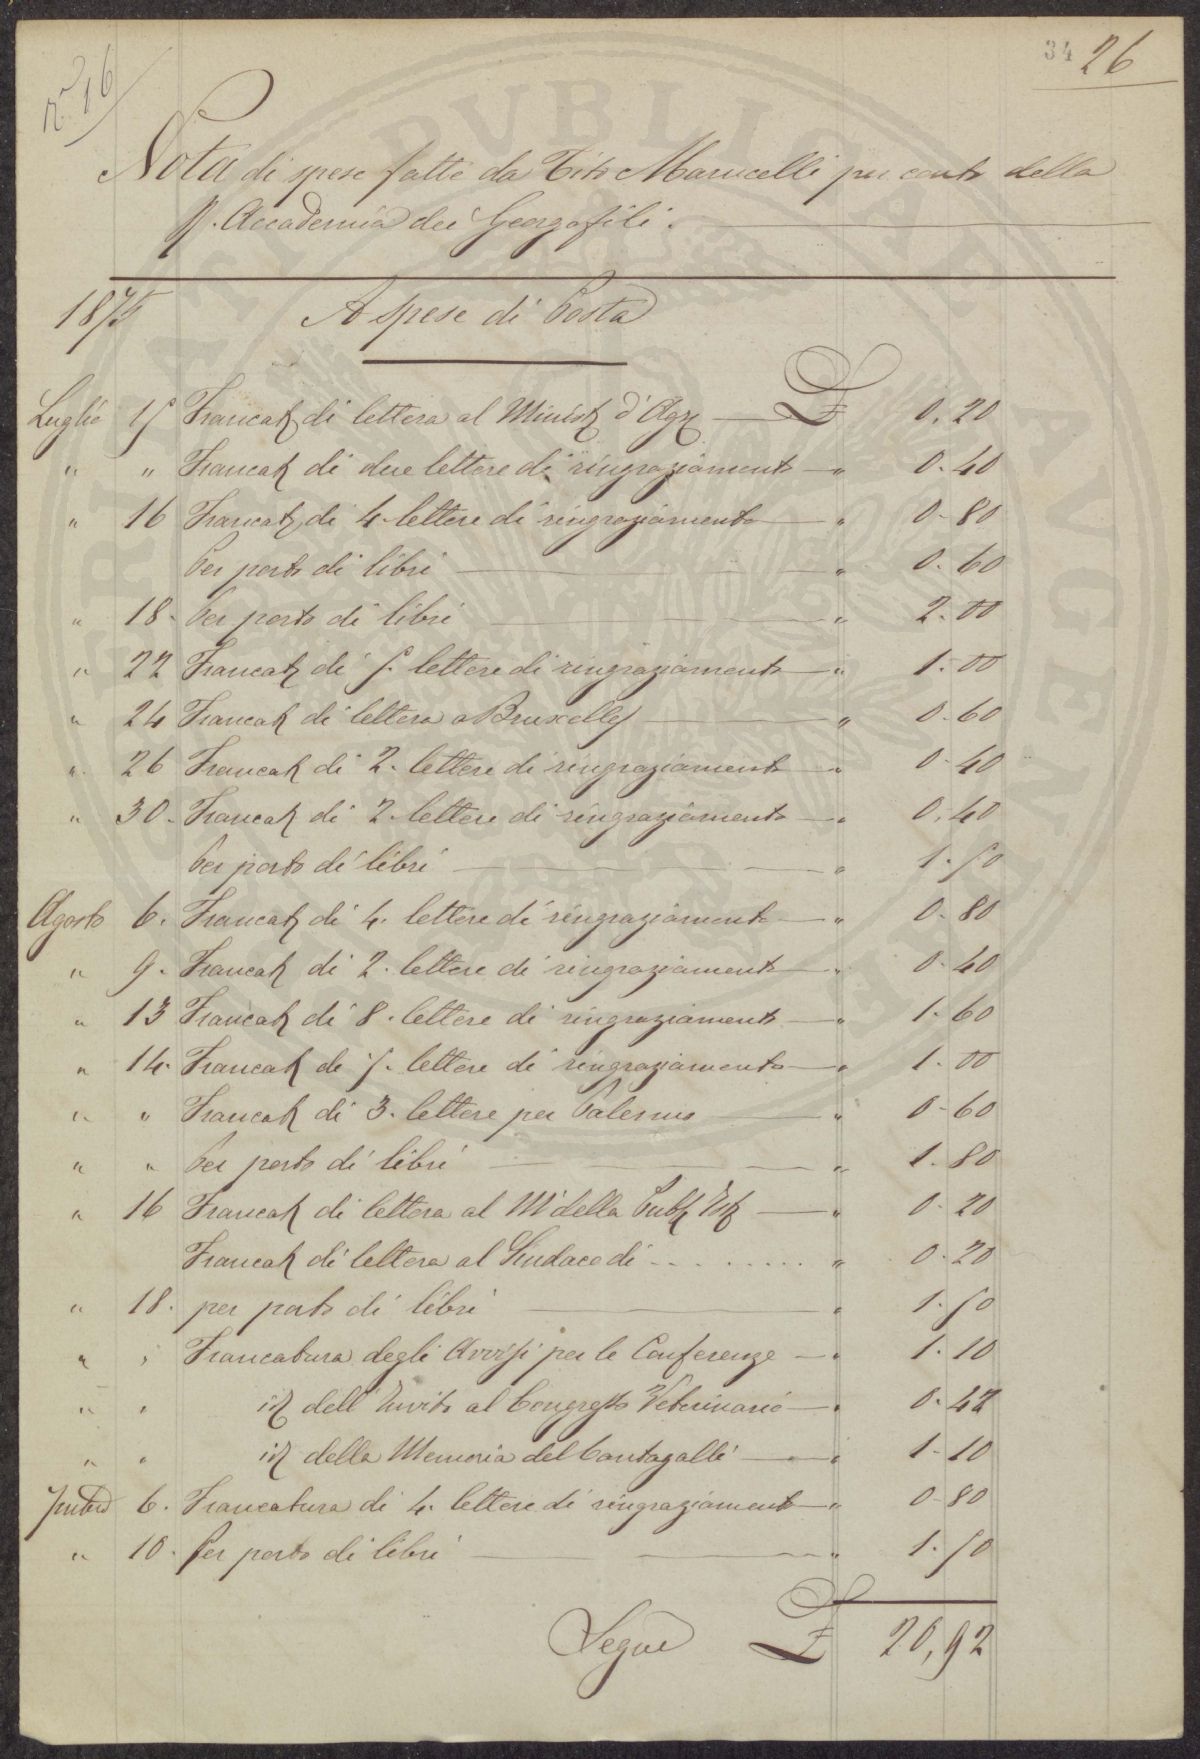 34 26
n° 16
Nota di spese fatte da Tito Marucelli per conto della
R. Accademia dei Georgofili.
1875 A spese di Posta
Luglio 15 Francat. di lettera al Minist. d'Agr. £ 0.20
" " Francat. di due lettere di ringraziamento " 0.40
" 16 Francat. di 4. lettere di ringraziamento " 0-80
Per porto di libri " 0.60
" 18. Per porto di libri " 2.00
" 22 Francat. di 5. lettere di ringraziamento " 1.00
" 24 Francat. di lettera a Bruxelles " 0.60
" 26 Francat. di 2. lettere di ringraziamento " 0.40
" 30. Francat. di 2. lettere di ringraziamento " 0.40
Per porto di libri " 1.50
Agosto 6. Francat. di 4. lettere di ringraziamento " 0.80
" 9. Francat. di 2. lettere di ringraziamento " 0.40
" 13 Francat. di 8. lettere di ringraziamento " 1.60
" 14. Francat. di 5. lettere di ringraziamento " 1.00
" " Francat. di 3. lettere per Palermo " 0-60
" " Per porto di libri " 1.80
" 16 Francat. di lettera al M° della Pub. Ist. " 0-20
Francat. di lettera al Sindaco di ......... " 0.20
" 18. per porto di libri " 1.50
" " Francatura degli Avvisi per le Conferenze " 1.10
" " id. dell'Invito al Congresso Veterinario " 0.42
" " id. della Memoria del Cantagalli " 1-10
7mbre 6. Francatura di 4. lettere di ringraziamento " 0.80
" 10. Per porto di libri " 1.50
Segue £ 20,92